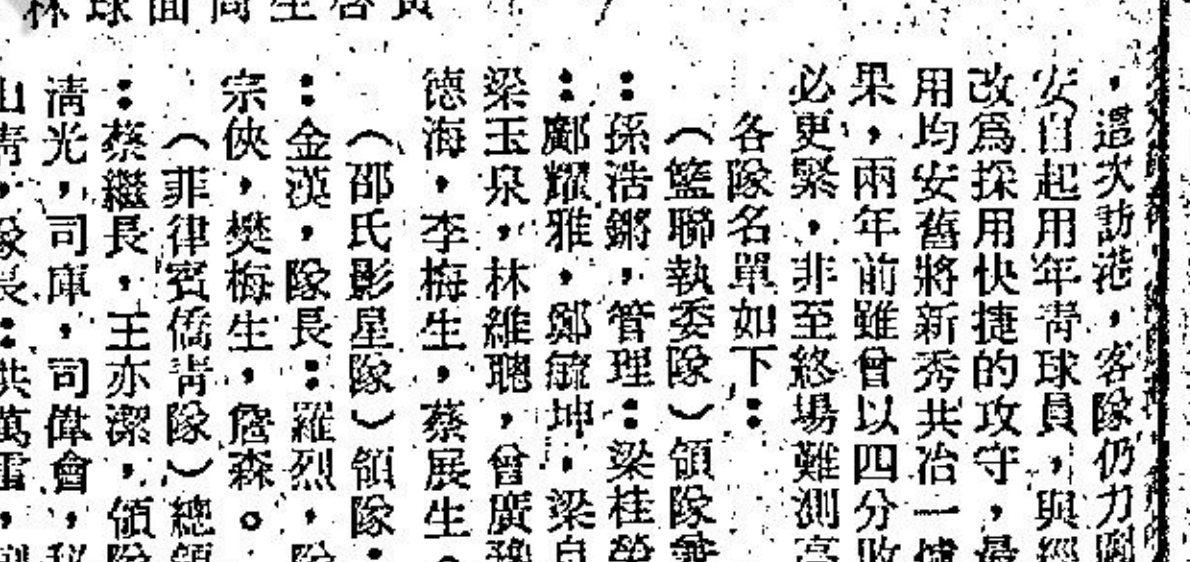 ，這次訪港，客隊仍力圖
安自起用年靑球員，與經
改爲採用快捷的攻守，最
用均安舊將新秀共冶一爐
果，兩年前雖曾以四分敗
必更緊，非至終場難測高
各隊名單如下：
（籃聯執委隊）領隊兼
：孫浩鏘，管理：梁桂榮
：鄺耀雅，鄭毓坤，梁自
梁玉泉，林維聰，曾廣
德海，李梅生，蔡展生。
（邵氏影星隊）領隊：
：金漢，隊長：羅烈，
宗俠，樊梅生，詹森。
（菲律賓僑靑隊）總領
：蔡繼長，王亦潔，領隊
淸光，司庫，司偉會，秘